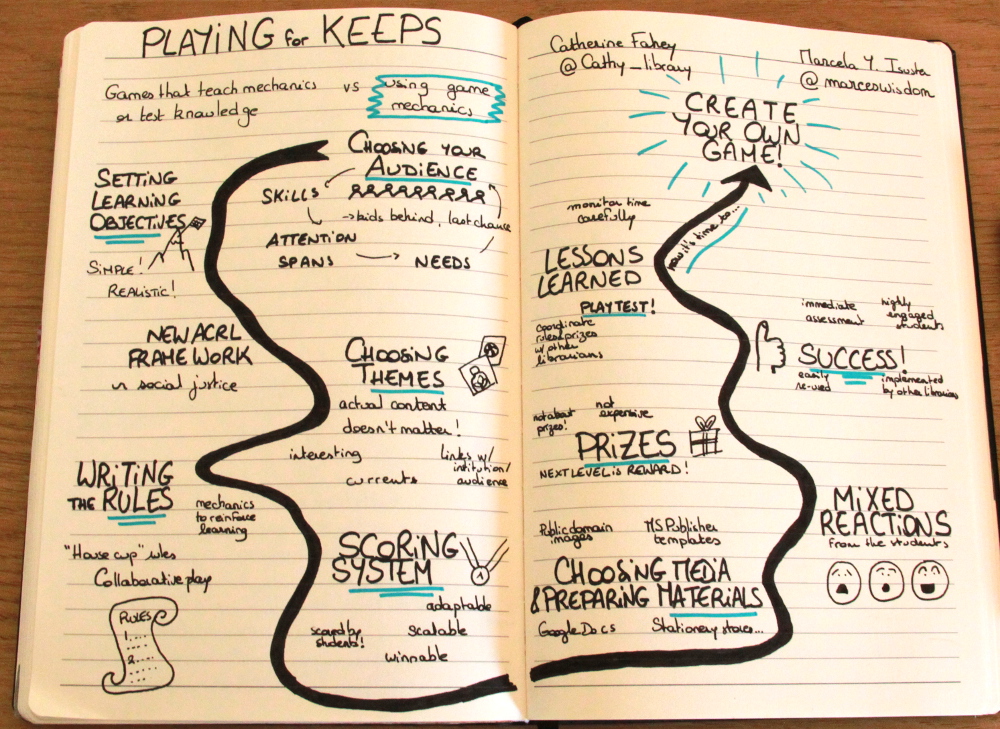 PLAYING for KEEPS
Games that teach mechanics
or test knowledge
vs
using game
mechanics
CHOOSING YOUR
AUDIENCE
SKILLS
→ kids behind, last chance
ATTENTION
SPANS
NEEDS
SETTING
LEARNING
OBJECTIVES
SIMPLE!
REALISTIC!
NEW ACRL
FRAMEWORK
social justice
CHOOSING
THEMES
actual content
doesn't matter!
interesting
links w/
institution/
audience
currents
WRITING
THE RULES
mechanics
to reinforce
learning
"House cup" rules
Collaborative play
RULES
1....
2....
SCORING
SYSTEM
adaptable
scored by
students!
scalable
winnable
Catherine Fahey
@Cathy_library
Marcela Y. Isuster
@marceswisdom
CREATE
YOUR OWN
GAME!
now it's time to...
monitor time
carefully
LESSONS
LEARNED
PLAYTEST!
coordinate
rules & prizes
w/ other
librarians
immediate
assessment
highly
engaged
students
SUCCESS!
easily
re-used
implemented
by other libraries
not about
prizes!
not
expensive
PRIZES
NEXT LEVEL IS REWARD!
MIXED
REACTIONS
from the students
Public domain
images
MS Publisher
templates
CHOOSING MEDIA
& PREPARING MATERIALS
Google Docs
Stationery stores...